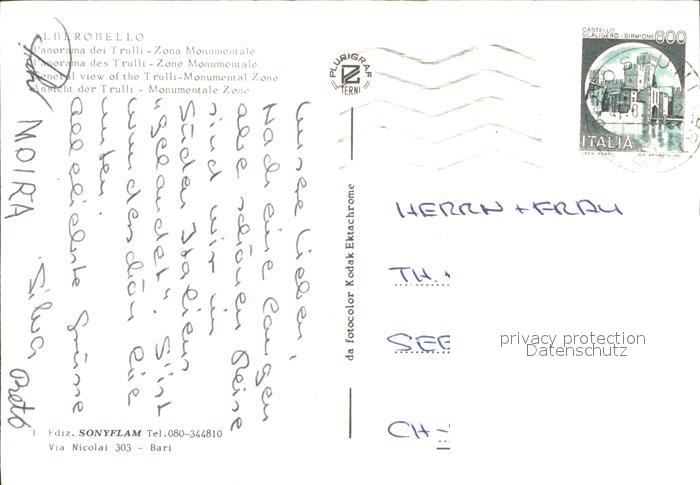 ALBEROBELLO
Panorama dei Trulli - Zona Monumentale
Panorama des Trulli - Zone Monumentale
General view of the Trulli-Monumental Zone
Ansicht der Trulli - Monumentale Zone
PLURIGRAF
TERNI
CASTELLO
SCALIGERO - SIRMIONE
600
ITALIA
unsere Lieben,
Nach eine langen
aber schönen Reise
sind wir im
Süden Italiens
"gelandet".
wunderschön
unten.
allerliebste Grüsse
Silvia
MOIRA
da fotocolor Kodak Ektachrome
HERRN + FRAU
TH.
SEE
CH-
privacy protection
Datenschutz
Ediz. SONYFLAM Tel.080-344810
Via Nicolai 303 - Bari